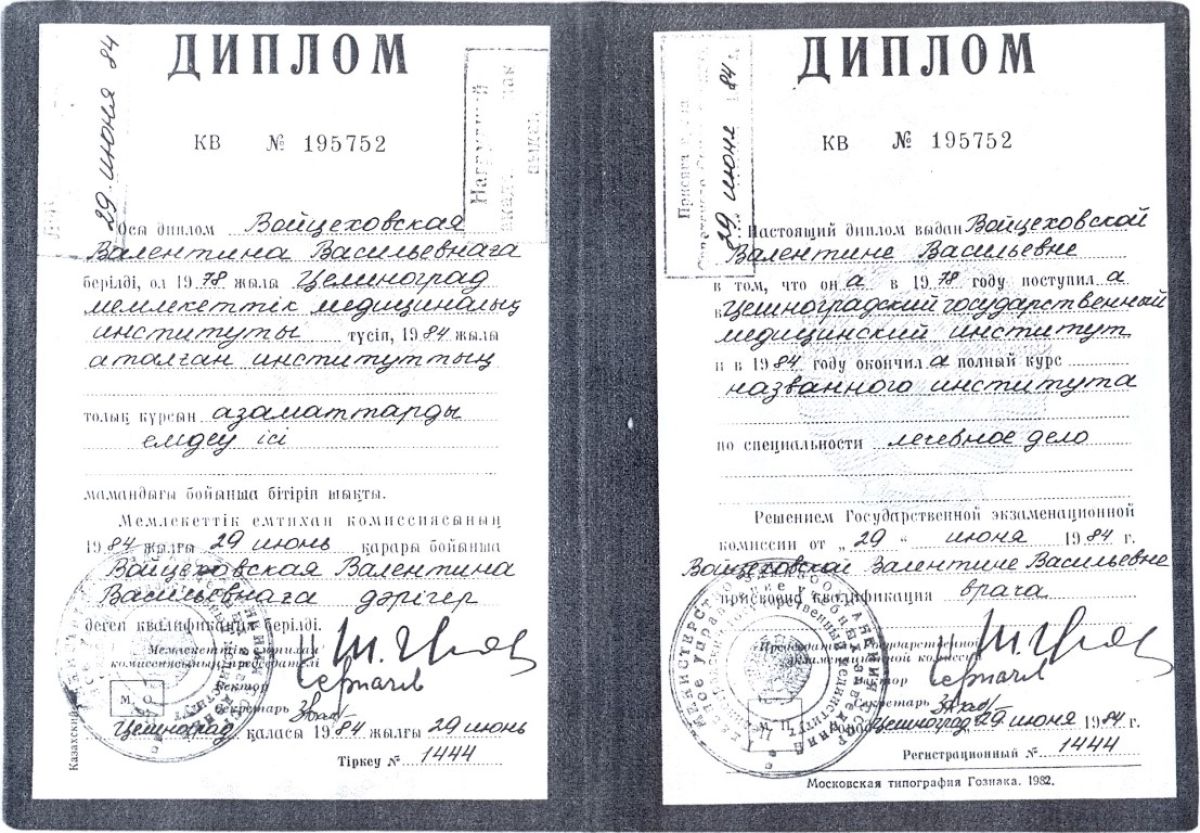 ДИПЛОМ
КВ № 195752
29 июня 84
Осы диплом Войцеховская
Валентина Васильевнаға
берілді, ол 1978 жылы Целиноград
мемлекеттік медициналық
институты түсіп, 1984 жылы
аталған институттың
толық курсын азаматтарды
емдеу ісі
мамандығы бойынша бітіріп шықты.
Мемлекеттік емтихан комиссиясының
1984 жылғы 29 июнь қарары бойынша
Войцеховская Валентина
Васильевнаға дәрігер
деген квалификация берілді.
Мемлекеттік емтихан
комиссиясының председателі
Ректор
Секретарь
М. О.
Целиноград қаласы 1984 жылғы 29 июнь
Тіркеу № 1444
Казахский
ДИПЛОМ
КВ № 195752
29 июня 84 г.
Настоящий диплом выдан Войцеховской
Валентине Васильевне
в том, что он а в 1978 году поступил а
в Целиноградский государственный
медицинский институт
и в 1984 году окончил а полный курс
названного института
по специальности лечебное дело
Решением Государственной экзаменационной
комиссии от „29“ июня 1984 г.
Войцеховской Валентине Васильевне
присвоена квалификация врача
Председатель Государственной
экзаменационной комиссии
Ректор
Секретарь
М. П.
Город Целиноград, 29 июня 1984 г.
Регистрационный № 1444
Московская типография Гознака. 1982.